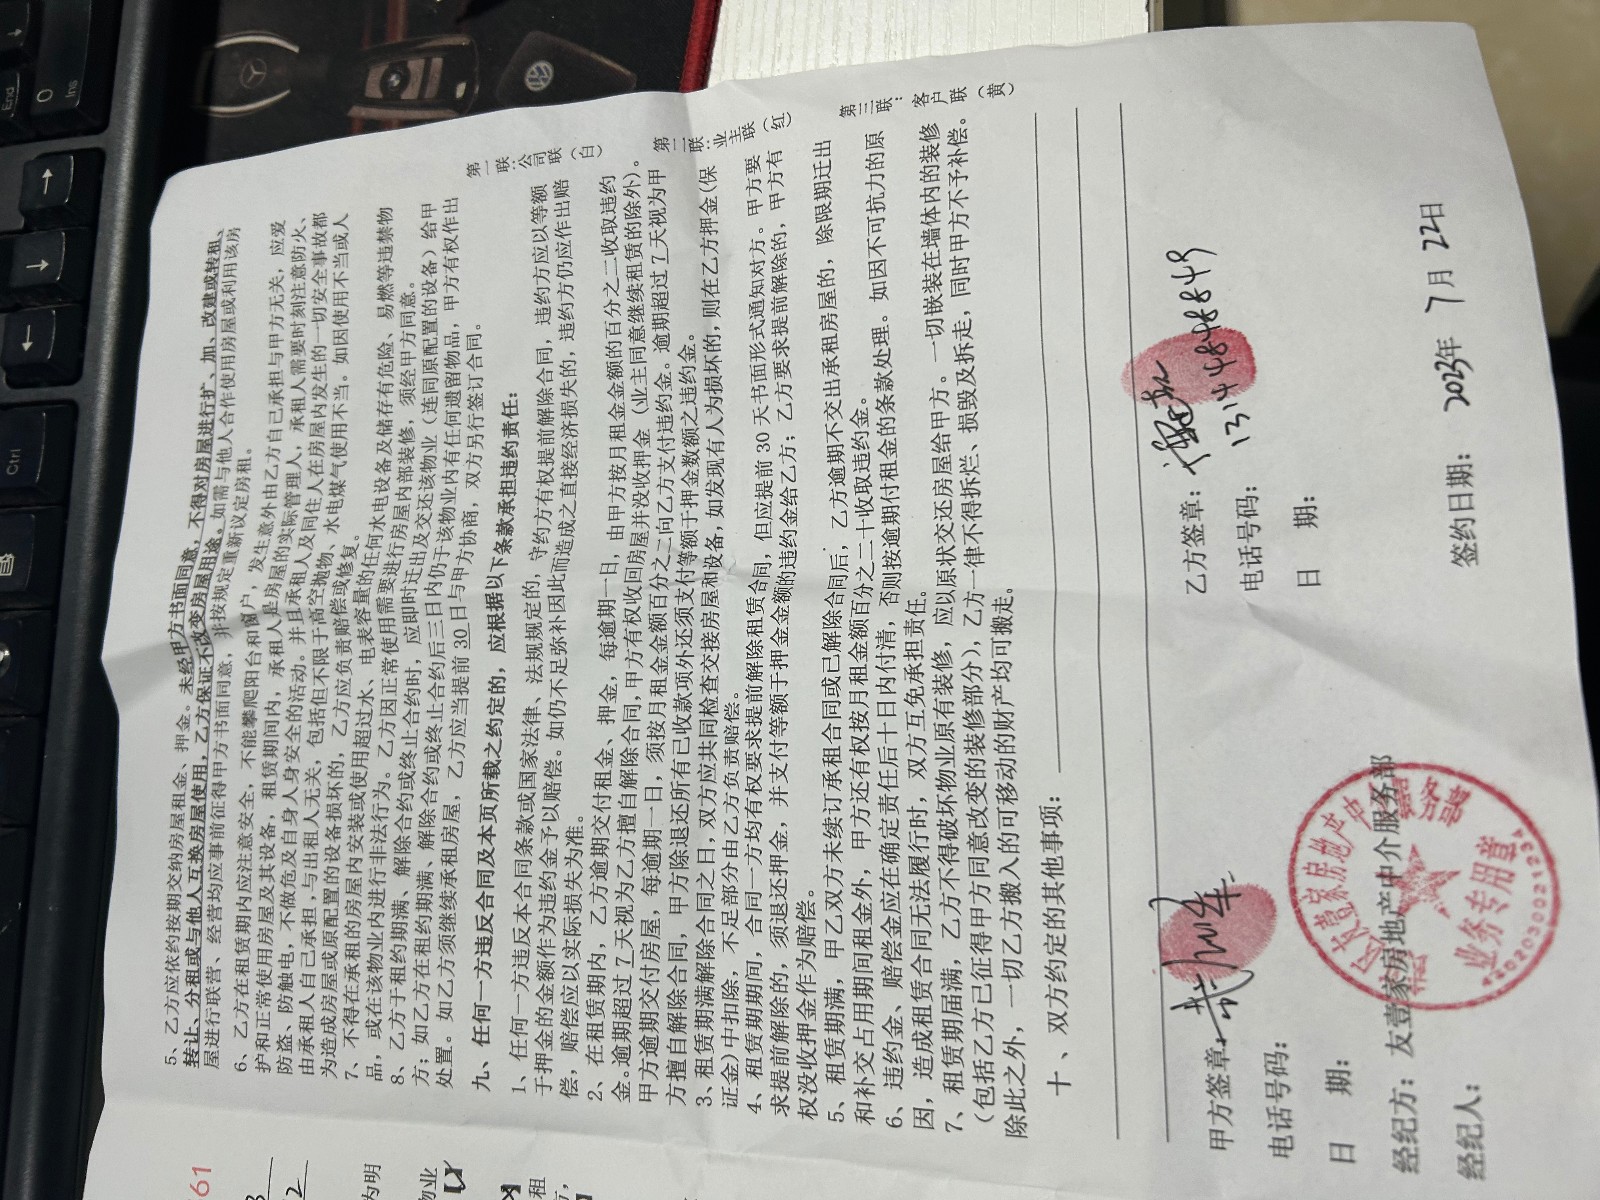 5、乙方应依约按期交纳房屋租金、押金。未经甲方书面同意，不得对房屋进行扩、加、改建或转租、
转让、分租或与他人互换房屋使用，乙方保证不改变房屋用途。如需与他人合作使用房屋或利用该房
屋进行联营、经营均应事前征得甲方书面同意，并按规定重新议定房租。
6、乙方在租赁期内应注意安全，不能攀爬阳台和窗户，发生意外由乙方自己承担与甲方无关，应爱
护和正常使用房屋及其设备，租赁期间内，承租人是房屋的实际管理人，承租人需要时刻注意防火、
防盗、防触电，不做危及自身人身安全的活动。并且承租人及同住人在房屋内发生的一切安全事故都
由承租人自己承担，与出租人无关，包括但不限于高空抛物、水电煤气使用不当。如因使用不当或人
为造成房屋或原配置的设备损坏的，乙方应负责赔偿或修复。
7、不得在承租的房屋内安装或使用超过水、电表容量的任何水电设备及储存有危险、易燃等违禁物
品，或在该物业内进行非法行为。乙方因正常使用需要进行房屋内部装修，须经甲方同意。
8、乙方于租约期满、解除合约或终止合约时，应即时迁出及交还该物业（连同原配置的设备）给甲
方；如乙方在租约期满、解除合约或终止合约后三日内仍于该物业内有任何遗留物品，甲方有权作出
处置。如乙方须继续承租房屋，乙方应当提前 30 日与甲方协商，双方另行签订合同。
九、任何一方违反合同及本页所载之约定的，应根据以下条款承担违约责任：
1、任何一方违反本合同条款或国家法律、法规规定的，守约方有权提前解除合同，违约方应以等额
于押金的金额作为违约金予以赔偿。如仍不足弥补因此而造成之直接经济损失的，违约方仍应作出赔
偿，赔偿应以实际损失为准。
2、在租赁期内，乙方逾期交付租金、押金，每逾期一日，由甲方按月租金金额的百分之二收取违约
金。逾期超过 7 天视为乙方擅自解除合同，甲方有权收回房屋并没收押金（业主同意继续租赁的除外）。
甲方逾期交付房屋，每逾期一日，须按月租金金额百分之二向乙方支付违约金。逾期超过 7 天视为甲
方擅自解除合同，甲方除退还所有已收款项外还须支付等额于押金数额之违约金。
3、租赁期满解除合同之日，双方应共同检查交接房屋和设备，如发现有人为损坏的，则在乙方押金（保
证金）中扣除，不足部分由乙方负责赔偿。
4、租赁期期间，合同一方均有权要求提前解除租赁合同，但应提前 30 天书面形式通知对方。甲方要
求提前解除的，须退还押金，并支付等额于押金金额的违约金给乙方；乙方要求提前解除的，甲方有
权没收押金作为赔偿。
5、租赁期满，甲乙双方未续订承租合同或已解除合同后，乙方逾期不交出承租房屋的，除限期迁出
和补交占用期间租金外，甲方还有权按月租金额百分之二十收取违约金。
6、违约金、赔偿金应在确定责任后十日内付清，否则按逾期付租金的条款处理。如因不可抗力的原
因，造成租赁合同无法履行时，双方互免承担责任。
7、租赁期届满，乙方不得破坏物业原有装修，应以原状交还房屋给甲方。一切嵌装在墙体内的装修
（包括乙方已征得甲方同意改变的装修部分），乙方一律不得拆烂、损毁及拆走，同时甲方不予补偿。
除此之外，一切乙方搬入的可移动的财产均可搬走。
十、双方约定的其他事项：
第一联：公司联（白）
第二联：业主联（红）
第三联：客户联（黄）
甲方签章：
电话号码：
日 期：
经纪方：友壹家房地产中介服务部
经纪人：
乙方签章：
电话号码：13144848849
日 期：
签约日期：2023年 7月 22日
业务专用章
61
为明
物业
租